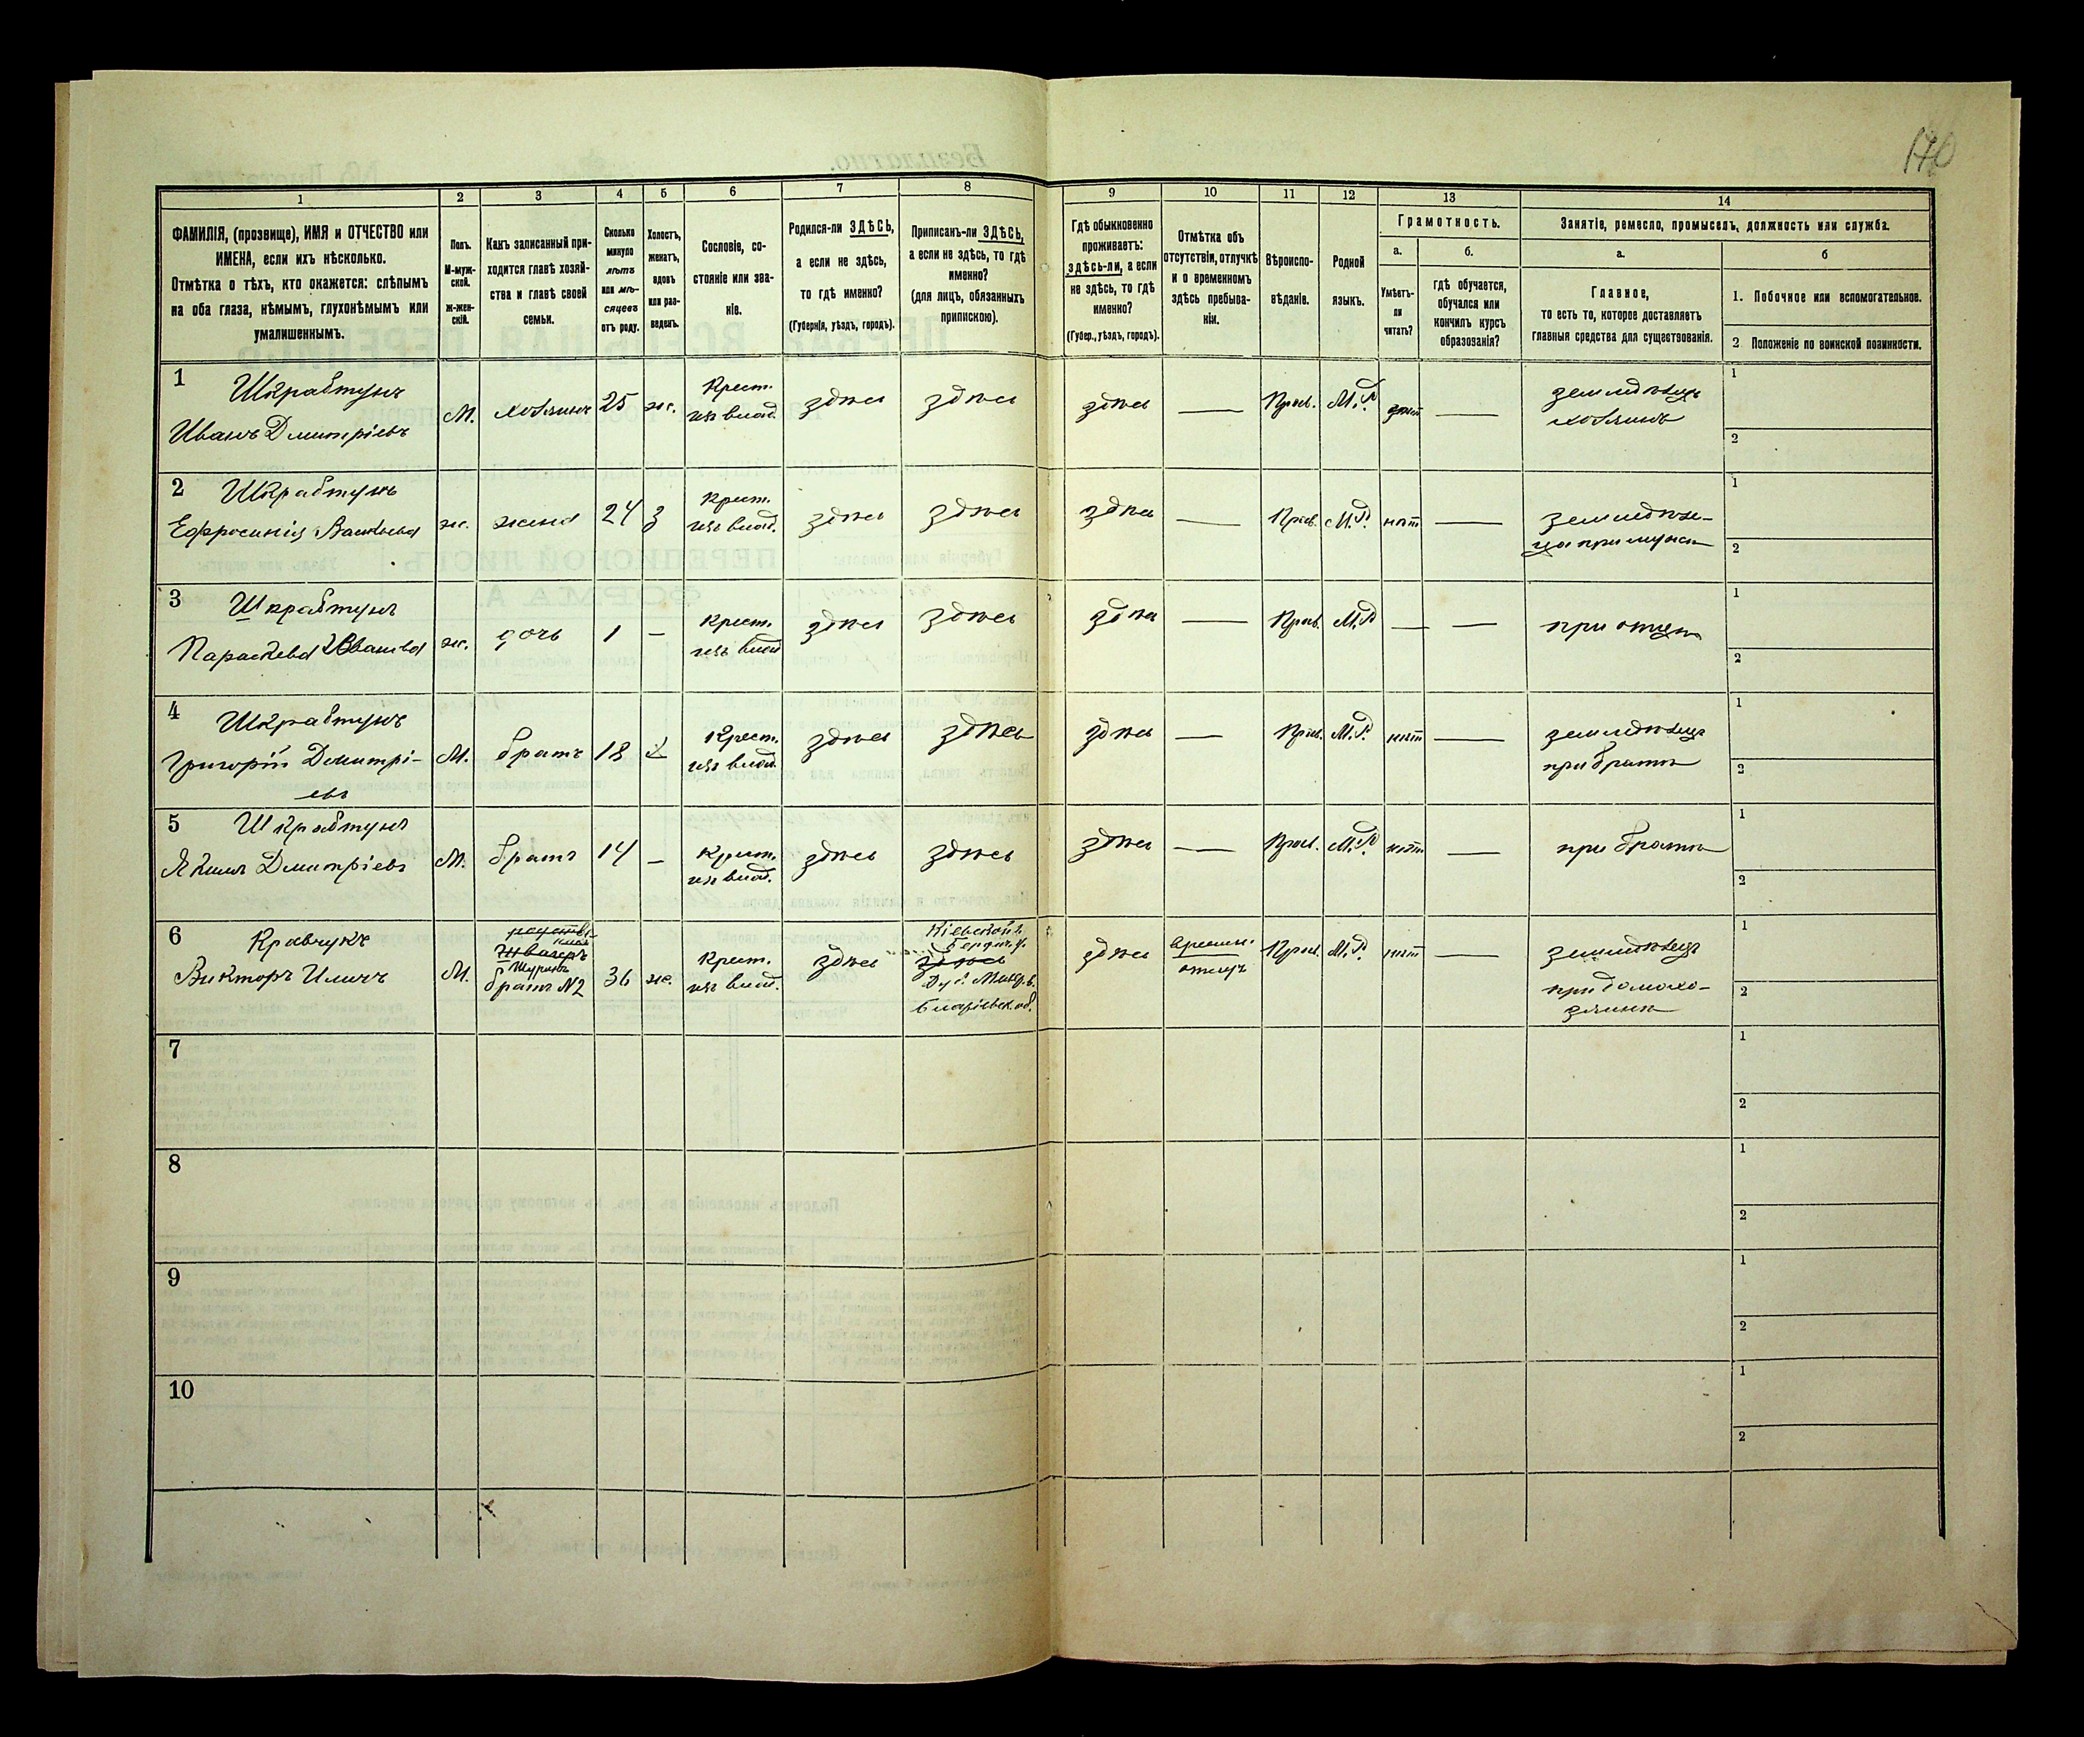 170
1
2
3
4
5
6
7
8
9
10
11
12
13
14
ФАМИЛІЯ, (прозвище), ИМЯ и ОТЧЕСТВО или
ИМЕНА, если ихъ нѣсколько.
Отмѣтка о тѣхъ, кто окажется: слѣпымъ
на оба глаза, нѣмымъ, глухонѣмымъ или
умалишеннымъ.
Полъ.
М-муж-
ской.
ж-жен-
скій.
Какъ записанный при-
ходится главѣ хозяй-
ства и главѣ своей
семьи.
Сколько
минуло
лѣтъ
или мѣ-
сяцевъ
отъ роду.
Холостъ,
женатъ,
вдовъ
или раз-
веденъ.
Сословіе, со-
стояніе или зва-
ніе.
Родился-ли ЗДѢСЬ,
а если не здѣсь,
то гдѣ именно?
(Губернія, уѣздъ, городъ).
Приписанъ-ли ЗДѢСЬ,
а если не здѣсь, то гдѣ
именно?
(для лицъ, обязанныхъ
припискою).
Гдѣ обыкновенно
проживаетъ:
здѣсь-ли, а если
не здѣсь, то гдѣ
именно?
(Губер., уѣздъ, городъ).
Отмѣтка объ
отсутствіи, отлучкѣ
и о временномъ
здѣсь пребыва-
ніи.
Вѣроиспо-
вѣданіе.
Родной
языкъ.
Грамотность.
а.
Умѣетъ-
ли
читать?
б.
гдѣ обучается,
обучался или
кончилъ курсъ
образованія?
Занятіе, ремесло, промыселъ, должность или служба.
а.
Главное,
то есть то, которое доставляетъ
главныя средства для существованія.
б
1. Побочное или вспомогательное.
2 Положеніе по воинской повинности.
1
Шкрабтунъ
Иванъ Дмитріевъ
М.
хозяинъ
25
ж.
Крест.
изъ влад.
здѣсь
здѣсь
здѣсь
—
Прав.
М.Р.
—
земледѣлецъ
хозяинъ
1
2
2
Шкрабтунъ
Ефросинія
ж.
жена
24
З
Крест.
изъ влад.
здѣсь
здѣсь
здѣсь
—
Прав.
М.Р.
нѣтъ
—
земледѣли-
ца при мужѣ
1
2
3
Шкрабтунъ
Параскева Иванова
ж.
дочь
1
—
Крест.
изъ влад
здѣсь
здѣсь
здѣсь
—
Прав.
М.Р
—
—
при отцѣ
1
2
4
Шкрабтунъ
Григорій Дмитрі-
евъ
М.
братъ
18
х
Крест.
изъ влад.
здѣсь
здѣсь
здѣсь
—
Прав.
М.Р.
нѣтъ
—
земледѣлецъ
при братѣ
1
2
5
Шкрабтунъ
Якимъ Дмитріевъ
М.
братъ
14
—
Крест.
изъ влад.
здѣсь
здѣсь
здѣсь
—
Прав.
М.Р.
нѣтъ
—
при братѣ
1
2
6
Кравчукъ
Викторъ Иличъ
М.
Шуринъ
братъ №2
36
ж.
Крест.
изъ влад.
здѣсь
Кіевской г.
Бердич. у.
здѣсь
здѣсь
времен.
отлуч
Прав.
М.Р.
нѣтъ
—
земледѣлецъ
при домохо-
зяинѣ
1
2
7
1
2
8
1
2
9
1
2
10
1
2